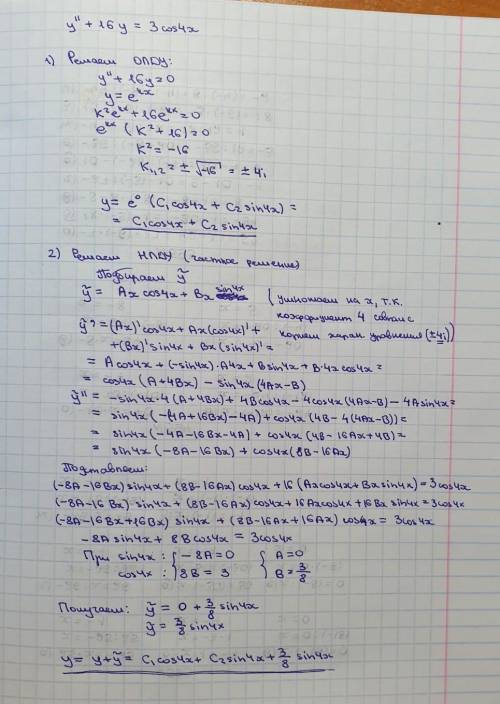 y'' + 16y = 3cos4x
1) Решаем ОЛДУ:
y'' + 16y = 0
y = e^{kx}
k²e^{kx} + 16e^{kx} = 0
e^{kx} (k² + 16) = 0
k² = -16
k₁,₂ = ± √-16 = ± 4i
y = e⁰ (C₁cos4x + C₂sin4x) =
= C₁cos4x + C₂sin4x
2) Решаем НЛДУ (частное решение)
Подбираем ỹ
ỹ = Ax cos4x + Bx sin4x (умножаем на x, т.к.
коэффициент 4 совпал с
корнем характ уравнения (±4i))
ỹ' = (Ax)'cos4x + Ax(cos4x)' +
+ (Bx)'sin4x + Bx(sin4x)' =
= Acos4x + (-sin4x)·A4x + Bsin4x + B·4x cos4x =
= cos4x (A+4Bx) - sin4x (4Ax-B)
ỹ'' = -sin4x·4(A+4Bx) + 4Bcos4x - 4cos4x(4Ax-B) - 4Asin4x =
= sin4x (-(4A+16Bx)-4A) + cos4x (4B-4(4Ax-B)) =
= sin4x (-4A-16Bx-4A) + cos4x (4B-16Ax+4B) =
= sin4x (-8A-16Bx) + cos4x (8B-16Ax)
Подставляем:
(-8A-16Bx)sin4x + (8B-16Ax)cos4x + 16(Axcos4x+Bxsin4x) = 3cos4x
(-8A-16Bx)·sin4x + (8B-16Ax)cos4x + 16Axcos4x + 16Bx sin4x = 3cos4x
(-8A-16Bx+16Bx) sin4x + (8B-16Ax+16Ax) cos4x = 3cos4x
-8Asin4x + 8Bcos4x = 3cos4x
При sin4x: { -8A = 0 { A = 0
cos4x: { 8B = 3 { B = 3/8
Получаем: ỹ = 0 + 3/8 sin4x
ỹ = 3/8 sin4x
y = y + ỹ = C₁cos4x + C₂sin4x + 3/8 sin4x